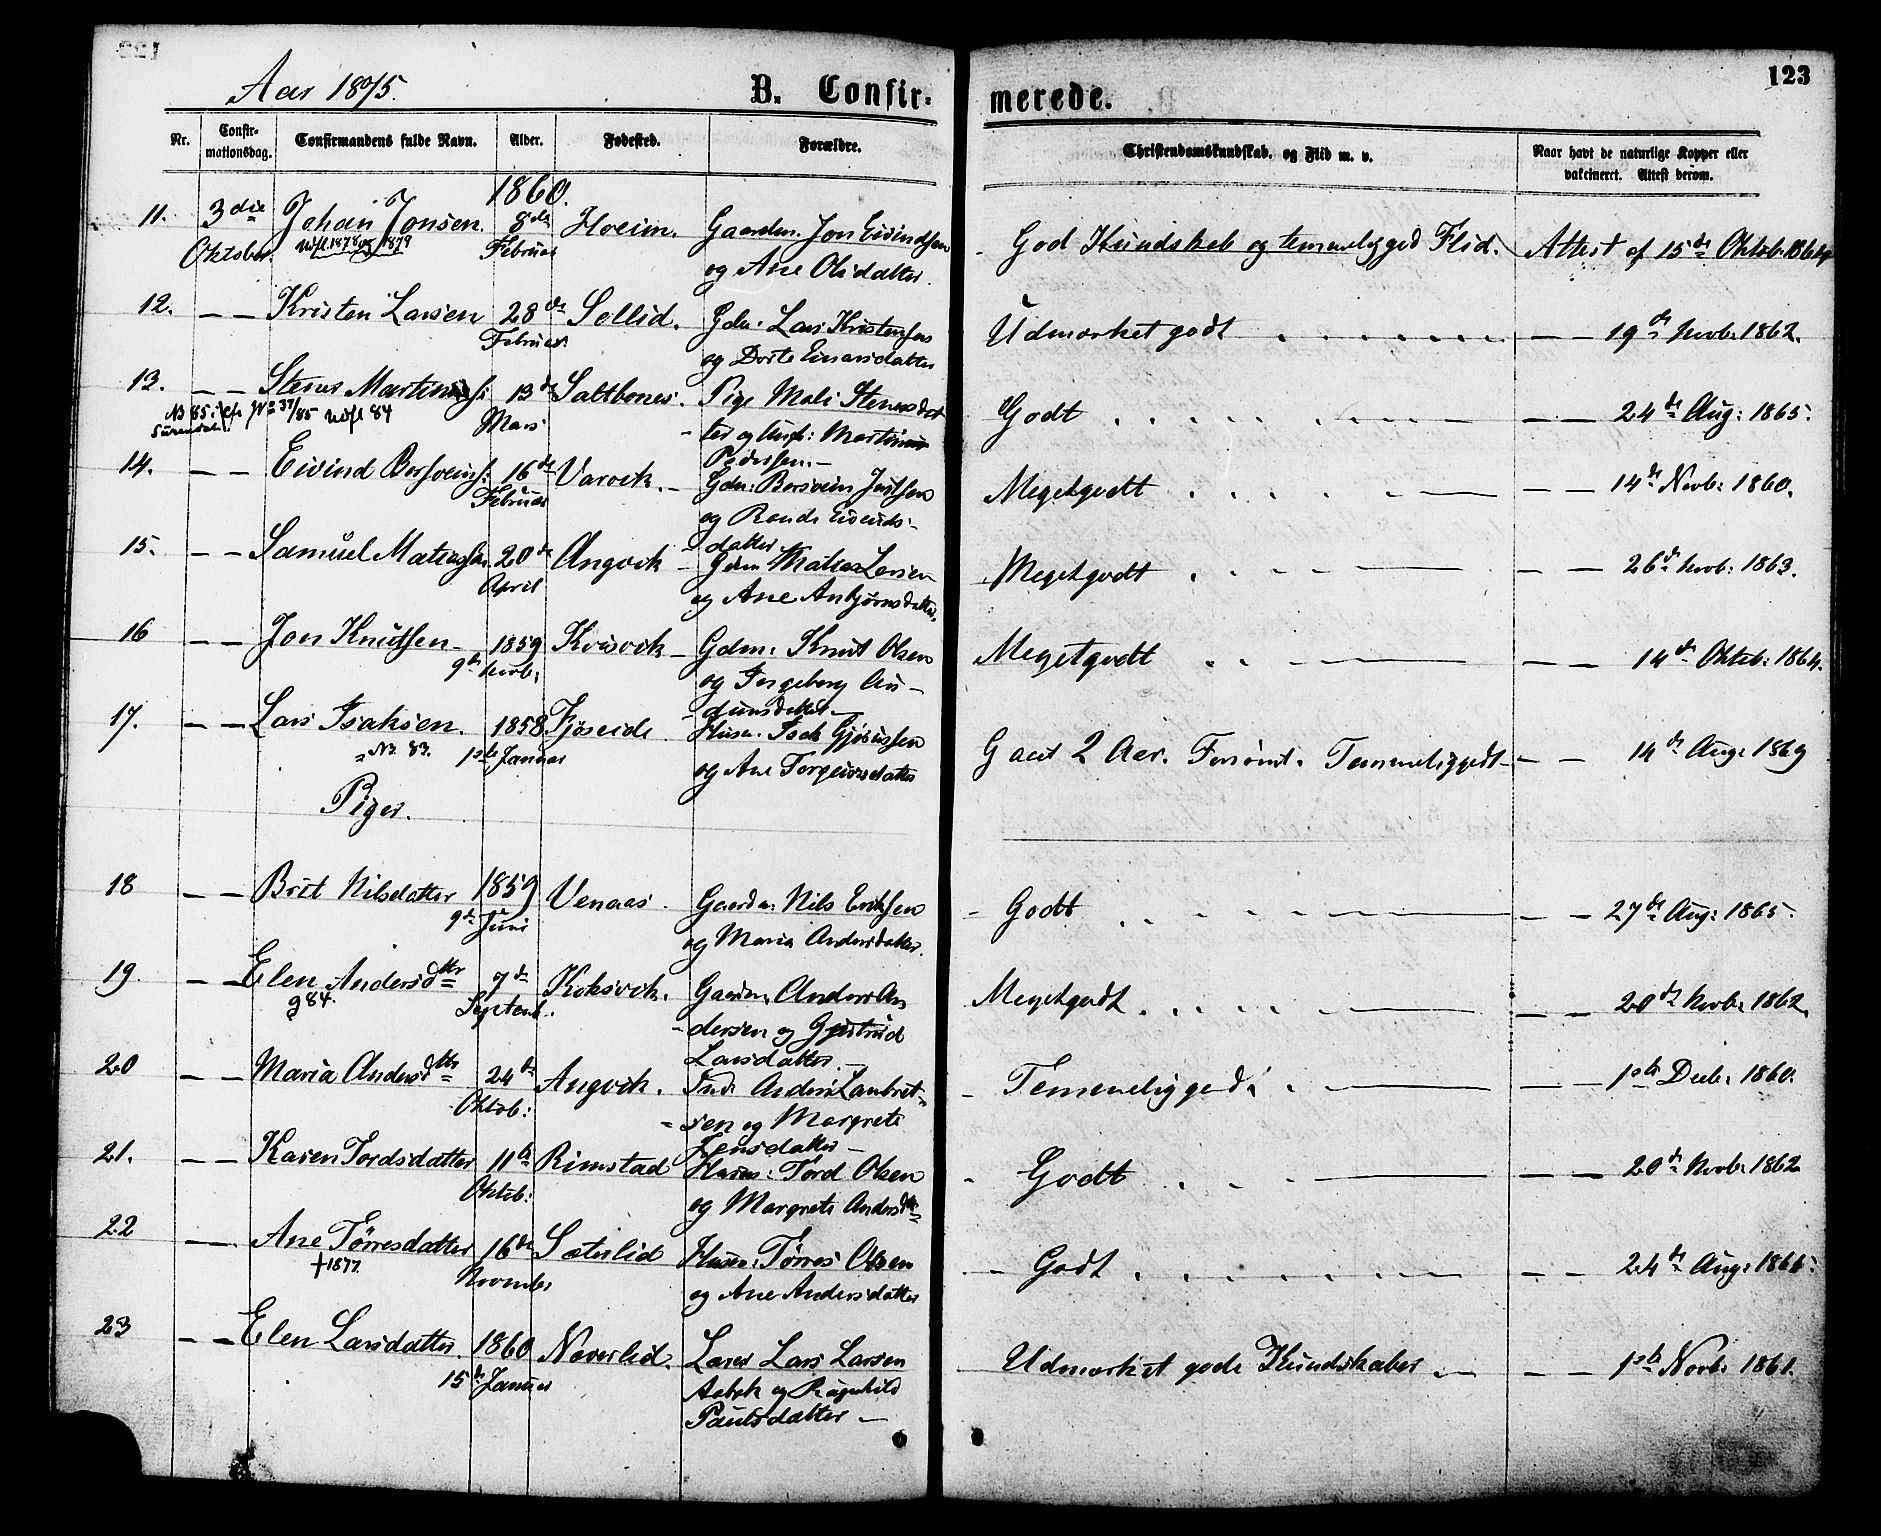 123
Aar 1875.
B. Confir-
merede.
Nr.
Confir-
mationsdag.
Confirmandens fulde Navn.
Alder.
Fødested.
Forældre.
Christendomskundskab, og Flid m. v.
Naar havt de naturlige Kopper eller
vakcineret. Attest derom.
1860.
11. 3die Johan Jonsen. 8de Hoeim. Gaardm. Jon Eivindsen God Kundskab og temmelig god Flid. Attest af 15de Oktob. 1864
Oktober 1878 og 1879 Februar og Ane Olsdatter.
12. — — Kristen Larsen 28de Sollid. Gdm. Lars Kristensen Udmærket godt — — 19de Novb. 1862.
Februar og Dorte Einarsdatter
13. — — 13de Saltbones. Pige Mali Godt — — 24de Aug: 1865.
No 37/85 84 Mars ter og Martinus
Pedersen.—
14. — — Eivind 16de Varvik. — Gdm: Meget godt — — 14de Novb: 1860.
Februar og Eivinds-
datter
15. — — Samuel 20de Angvik — Gdm Larsen Meget godt — — 26de Novb: 1863.
April og Ane
16 — — Jon Knudsen — 1859 Kvisvik — Gdm. Knut Olsen Meget godt — — 14de Oktob: 1864.
9de Novb: og Ingeborg Au-
dunsdatter —
17. — — Lars Isaksen. 1858 Husm. Isak Gaaet 2 Aar. Forsømt. Temmelig godt — — 14de Aug. 1869
83. 1ste Januar og Ane
Piger.
18 — — Brit Nilsdatter 1859 Venaas. Gaardm. Nils Eriksen — Godt — — 27de Aug: 1865.
9de Juni og Maria Andersdatter.
19. — — Elen Andersdtr 7de Koksvik. Gaardm. Anders An Meget godt — — 20de Novb. 1862.
84. Septemb. dersen og Gjertrud
Larsdatter —
20 — — Maria Andersdtr 24de Angvik. Anders Lambret- — Temmelig godt — — 1ste Decb. 1860.
Oktob: sen og Margrete
Jensdatter —
21. — — Karen Tordsdatter 11te Rimstad Husm: Tord Olsen — Godt — — 20de Novb. 1862
Oktob: og Margrete Andersdtr
22 — — Ane Tørresdatter 16de Sæterlid Husm: Tørres Olsen — Godt — — 24de Aug:
†1877 November og Ane Andersdatter
23 — — Elen Larsdatter 1860 Næverlid. Lærer Lars Larsen — Udmærket gode Kundskaber — — — 1ste Novb. 1861.
15de Januar og Ragnhild
Paulsdatter —